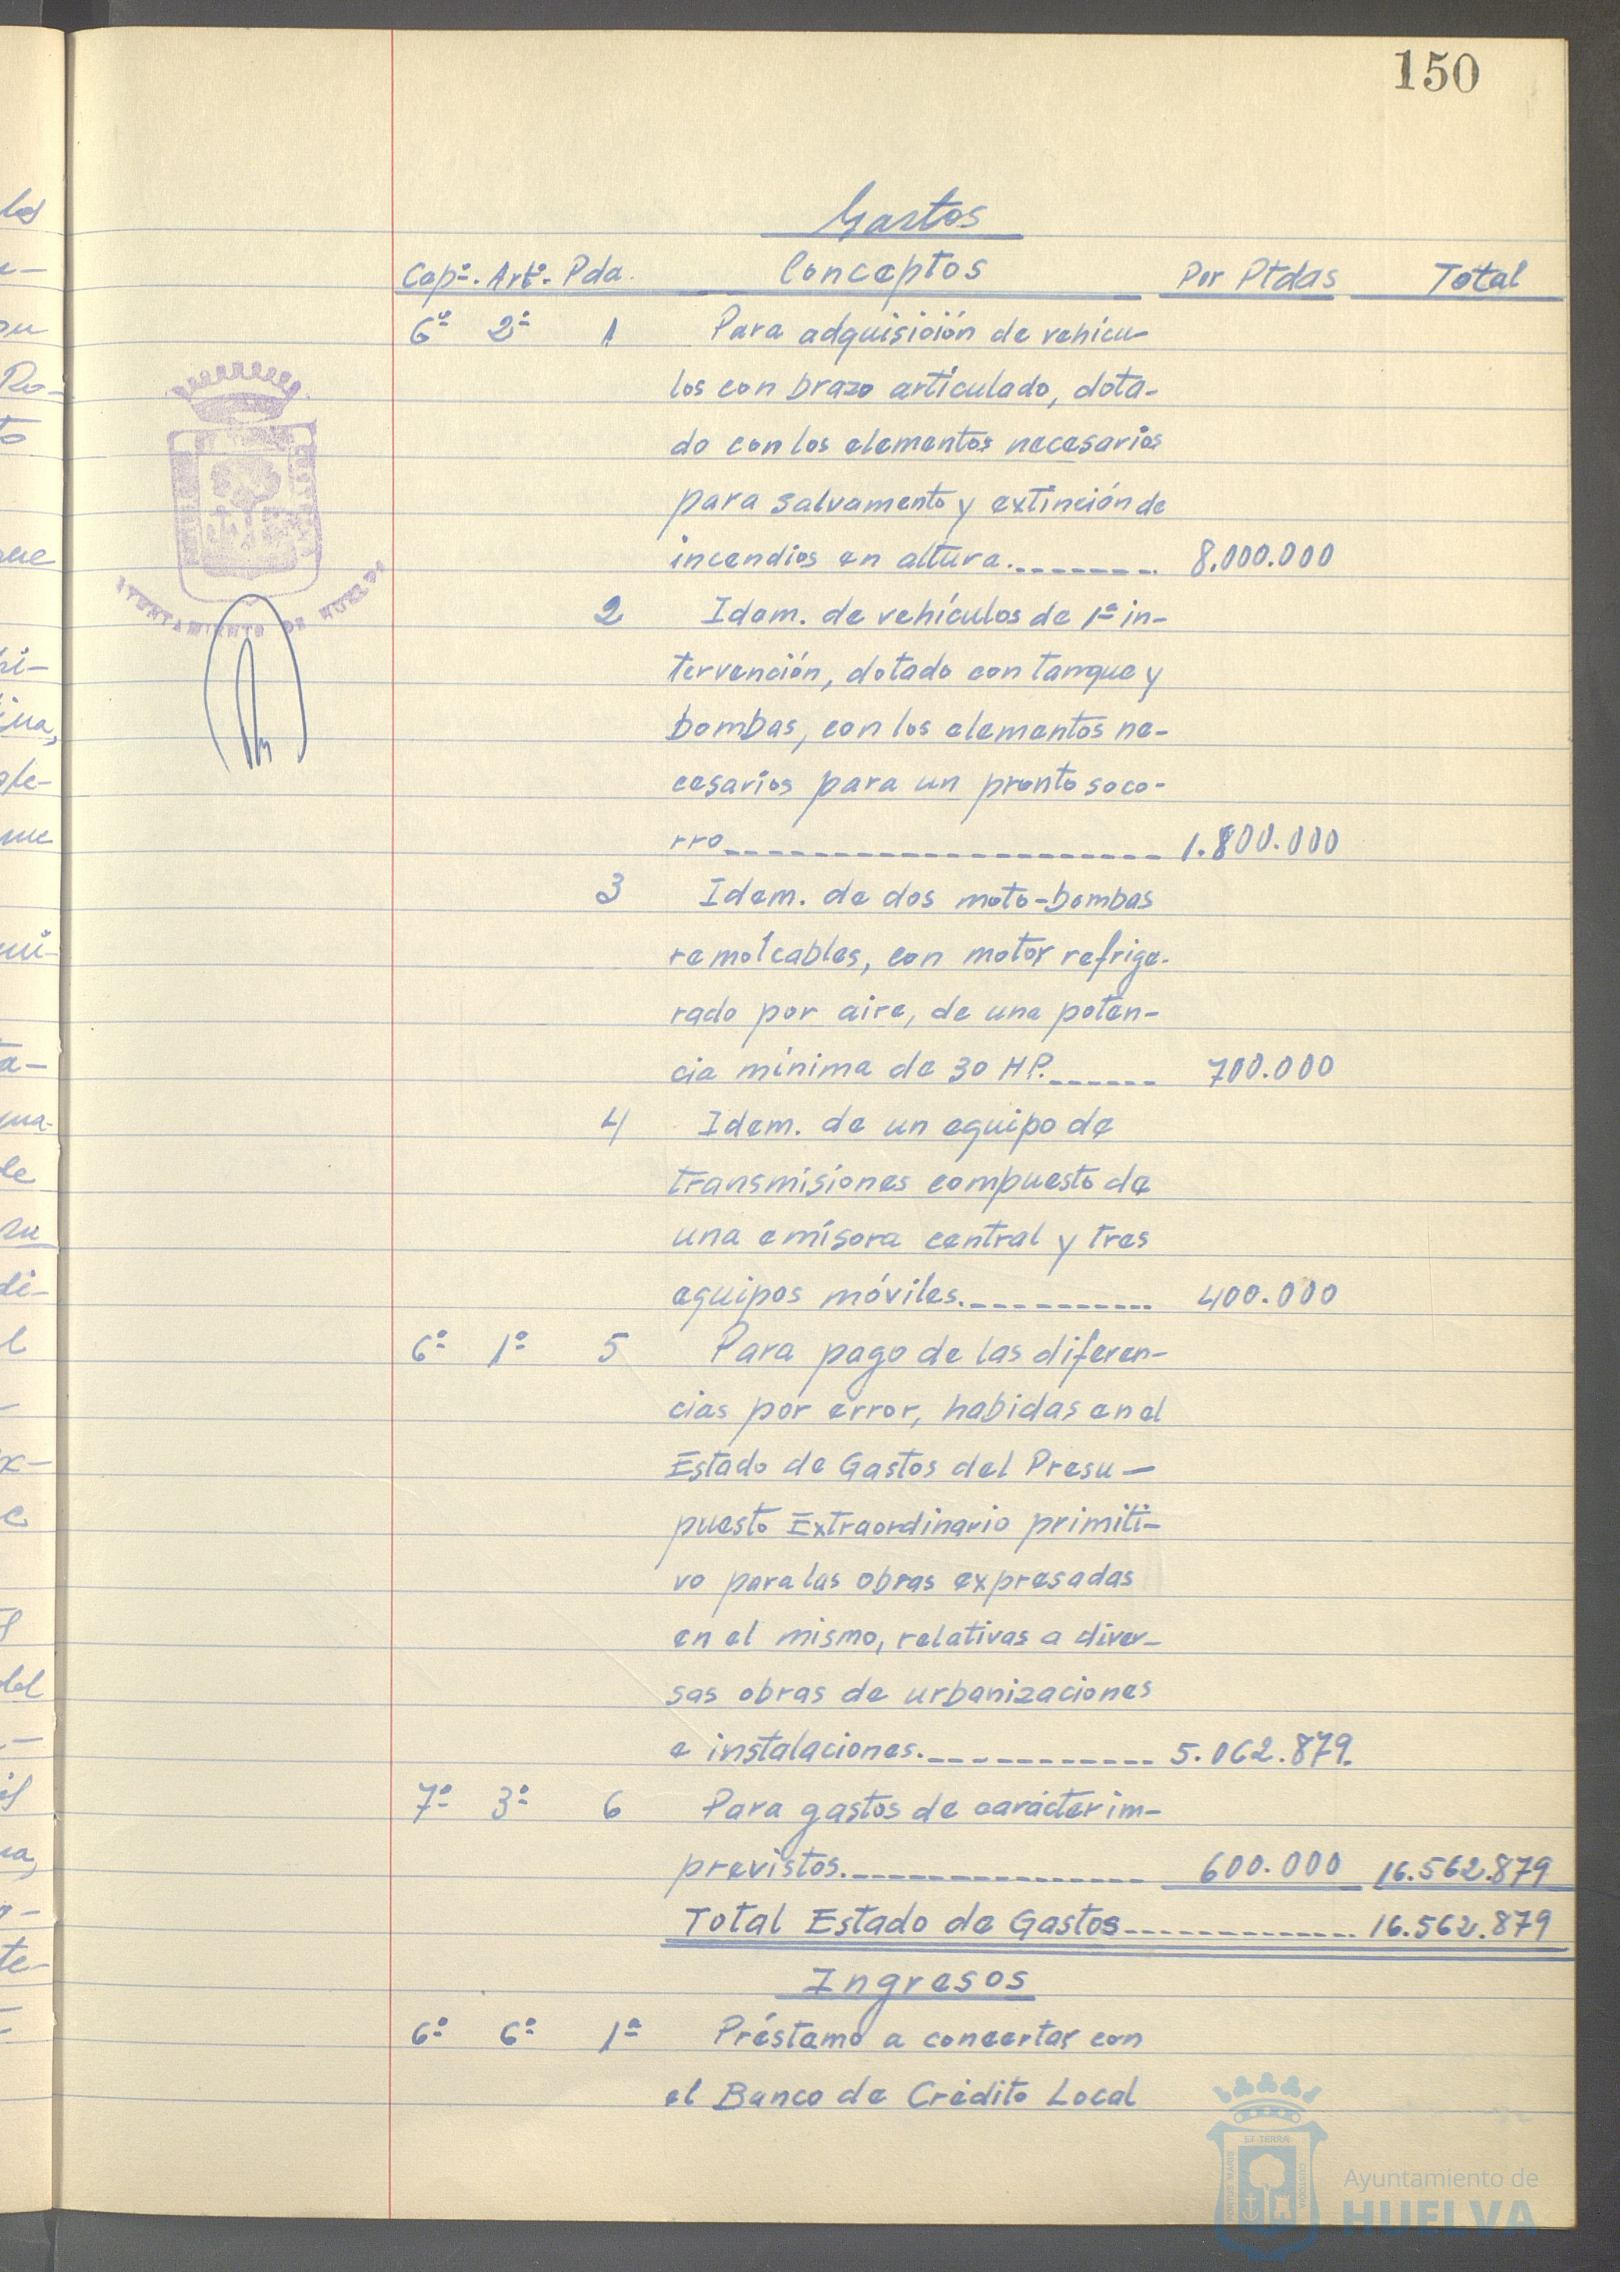 150
Gastos
Capº. Artº. Pda. Conceptos Por Ptdas Total
6º 2º 1 Para adquisición de vehícu-
los con brazo articulado, dota-
do con los elementos necesarios
para salvamento y extinción de
incendios en altura. 8.000.000
2 Idem. de vehículos de 1ª in-
tervención, dotado con tanque y
bombas, con los elementos ne-
cesarios para un pronto soco-
rro 1.800.000
3 Idem. de dos moto-bombas
remolcables, con motor refrige-
rado por aire, de una poten-
cia mínima de 30 HP. 700.000
4 Idem. de un equipo de
transmisiones compuesto de
una emisora central y tres
equipos móviles. 400.000
6º 1º 5 Para pago de las diferen-
cias por error, habidas en el
Estado de Gastos del Presu-
puesto Extraordinario primiti-
vo para las obras expresadas
en el mismo, relativas a diver-
sas obras de urbanizaciones
e instalaciones. 5.062.879.
7º 3º 6 Para gastos de carácter im-
previstos. 600.000 16.562.879
Total Estado de Gastos 16.562.879
Ingresos
6º 6º 1ª Préstamo a concertar con
el Banco de Crédito Local
AYUNTAMIENTO DE HUELVA
PORTUS MARIS ET TERRAE CUSTODIA
Ayuntamiento de
HUELVA